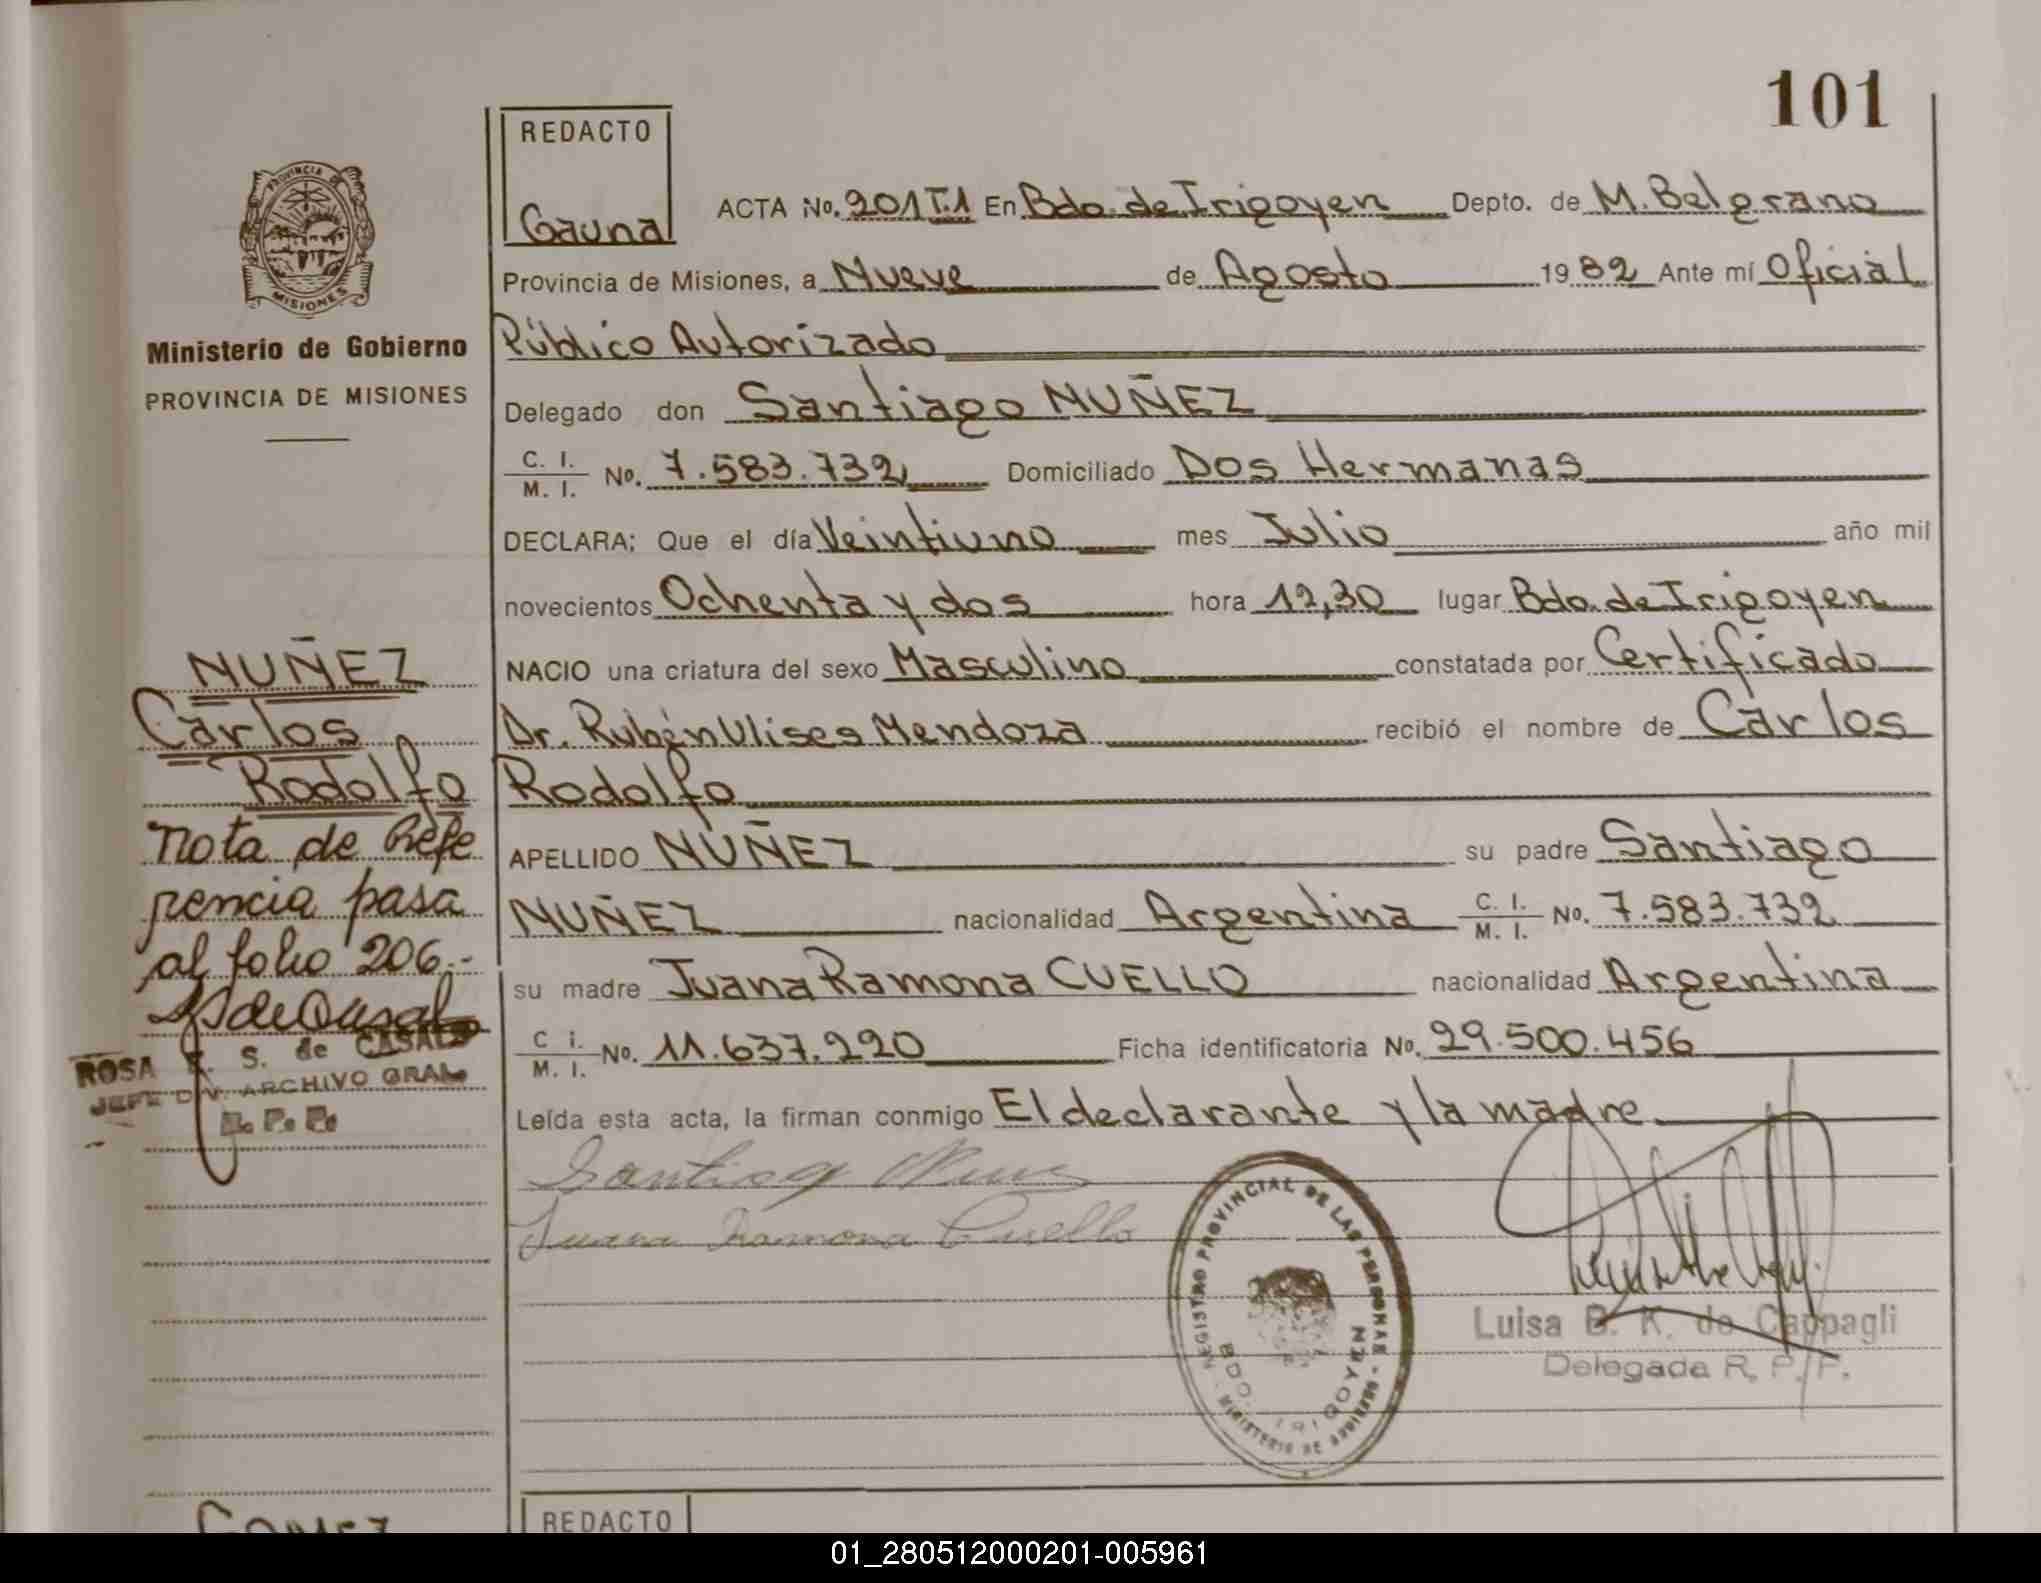 101
REDACTO
Gauna
ACTA No. 201 T.1 En Bdo. de Irigoyen Depto. de M. Belgrano
Provincia de Misiones, a Nueve de Agosto 1982 Ante mí Oficial
Público Autorizado
Delegado don Santiago NUÑEZ
C. I.
M. I. No. 7.583.732 Domiciliado Dos Hermanas
DECLARA; Que el día Veintiuno mes Julio año mil
novecientos Ochenta y dos hora 12,30 lugar Bdo. de Irigoyen
NACIO una criatura del sexo Masculino constatada por Certificado
Dr. Rubén Ulises Mendoza recibió el nombre de Carlos
Rodolfo
APELLIDO NUÑEZ su padre Santiago
NUÑEZ nacionalidad Argentina C. I. M. I. No. 7.583.732
su madre Juana Ramona CUELLO nacionalidad Argentina
C i. M. I. No. 11.637.220 Ficha identificatoria No. 29.500.456
Leída esta acta, la firman conmigo El declarante y la madre
Santiago
Juana Ramona Cuello
REGISTRO PROVINCIAL DE LAS PERSONAS - MINISTERIO DE GOBIERNO
BDO. IRIGOYEN
Luisa B. K. de Cappagli
Delegada R. P. P.
PROVINCIA DE
MISIONES
Ministerio de Gobierno
PROVINCIA DE MISIONES
NUÑEZ
Carlos
Rodolfo
Nota de Refe
rencia pasa
al folio 206.-
ROSA E. S. de CASALS
JEFE DIV. ARCHIVO GRAL
R. P. P.
GOMEZ
REDACTO
01_280512000201-005961